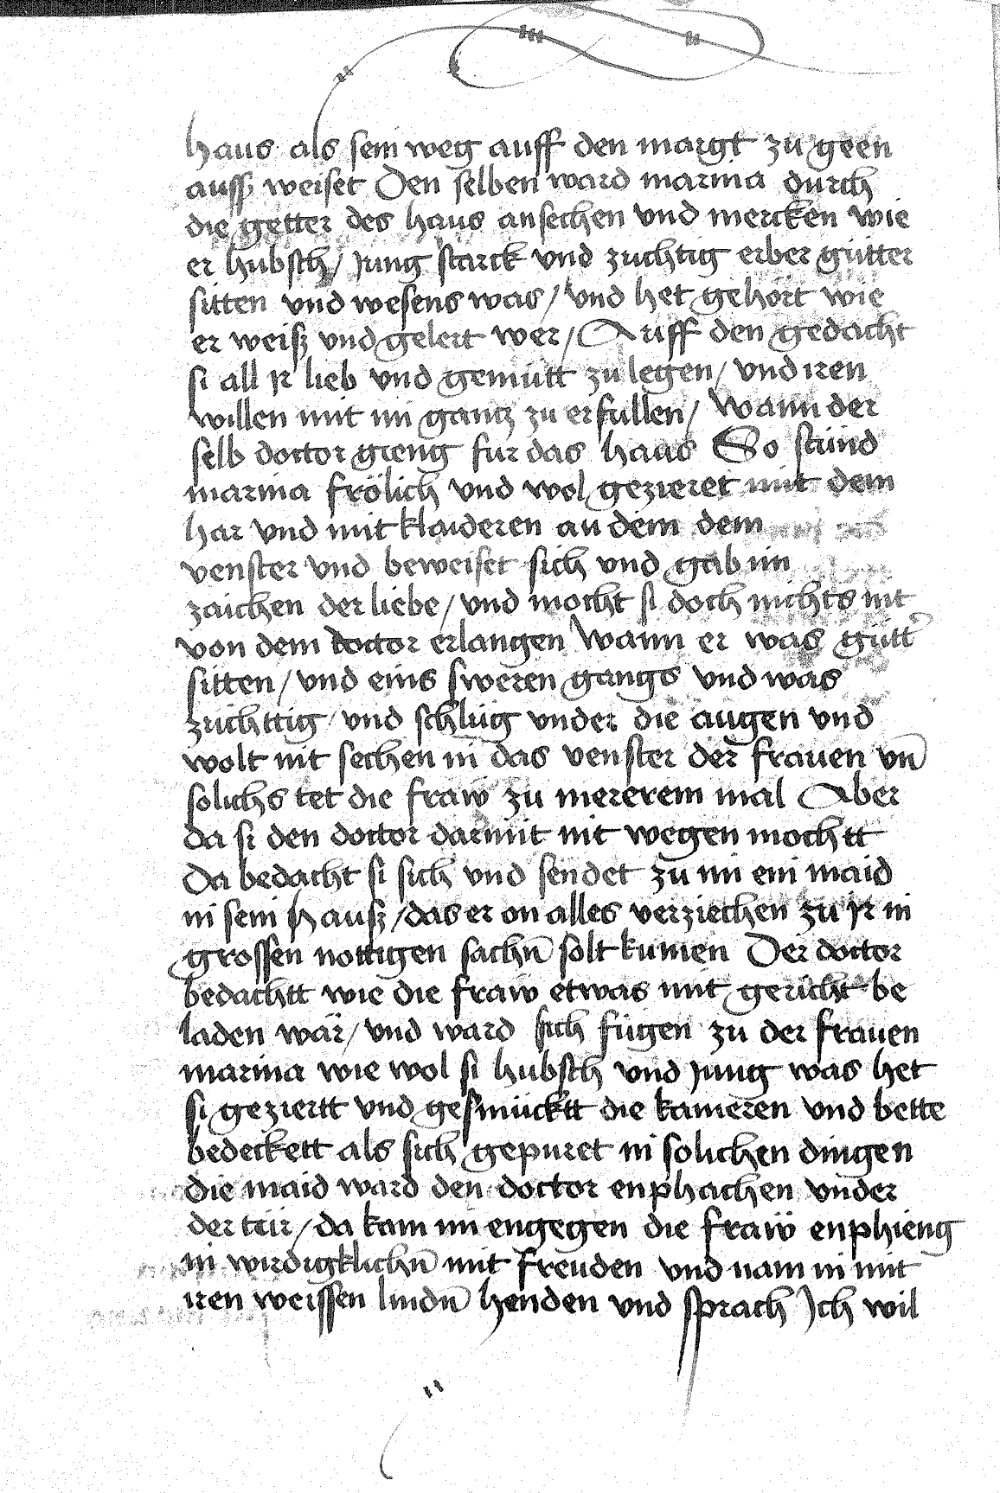 haus als sein weg auff den margt zu geen
ausß weiset Den selben ward marina durch
die getter des haus ansechen vnd mercken wie
er hubsch / jung starck vnd zuchtig erber gůtter
sitten vnd wesens was / vnd het gehört wie
er weiß vnd gelert wer / Auff den gedacht
si all jr lieb vnd gemůtt zu legen / vnd iren
willen mit im gantz zu erfullen / Wann der
selb doctor gieng fur das haus So stůnd
marina frölich vnd wol gezieret mit dem
har vnd mit klaideren an dem dem
venster vnd beweiset sich vnd gab im
zaichen der liebe / vnd mocht si doch nichts nit
von dem doctor erlangen Wann er was gůtt᷑
sitten / vnd eins sweren gangs vnd was
zuchttig / vnd schlůg vnder die augen vnd
wolt nit sechen in das venster der frauen vn̄
solichs tet die fraw zu mererem mal Aber
da si den doctor darmit nit wegen mochtt
Da bedacht si sich vnd sendet zu im ein maid
in sein hauß / das er on alles verziechen zu jr in
grossen nottigen sachn̄ solt kumen Der doctor
bedachtt wie die fraw etwas mit gericht be
laden wär / vnd ward sich fůgen zu der frauen
marina wie wol si hubsch vnd jung was het
si geziertt vnd geschmücktt die kameren vnd bette
bedeckett als sich gepuret in solichen dingen
die maid ward den doctor enphachen vnder
der tür / da kam im engegen die fraw enphieng
in wirdigklichn̄ mit freuden vnd nam in mit
iren weissen lindn̄ henden vnd sprach Ich wil